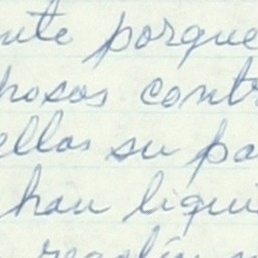 nte porque
posos contr
ellas su pa
han liqui